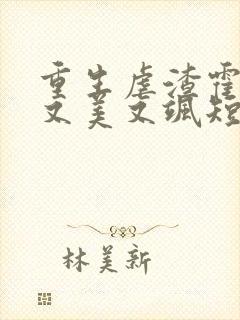 重生虐渣霍
又美又飒短
林美新